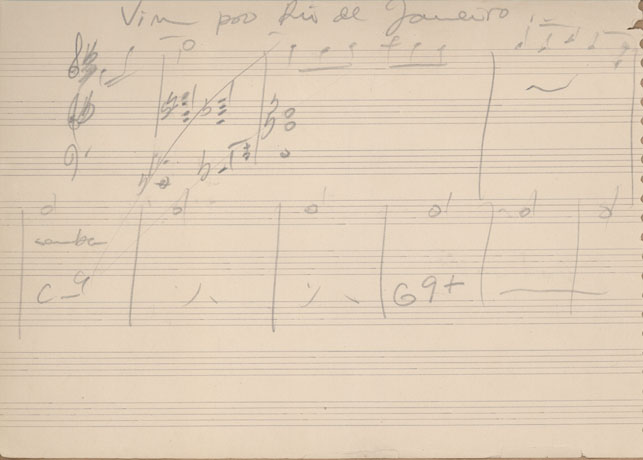 Vim pro Rio de Janeiro
samba
C-9
G9+